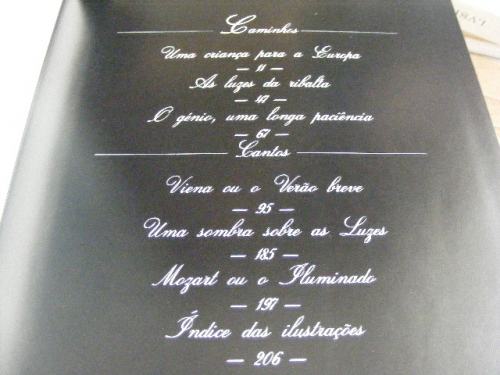 Caminhos
Uma criança para a Europa
— 11 —
As luzes da ribalta
— 47 —
O génio, uma longa paciência
— 67 —
Cantos
Viena ou o Verão breve
— 95 —
Uma sombra sobre as Luzes
— 185 —
Mozart ou o Iluminado
— 197 —
Índice das ilustrações
— 206 —